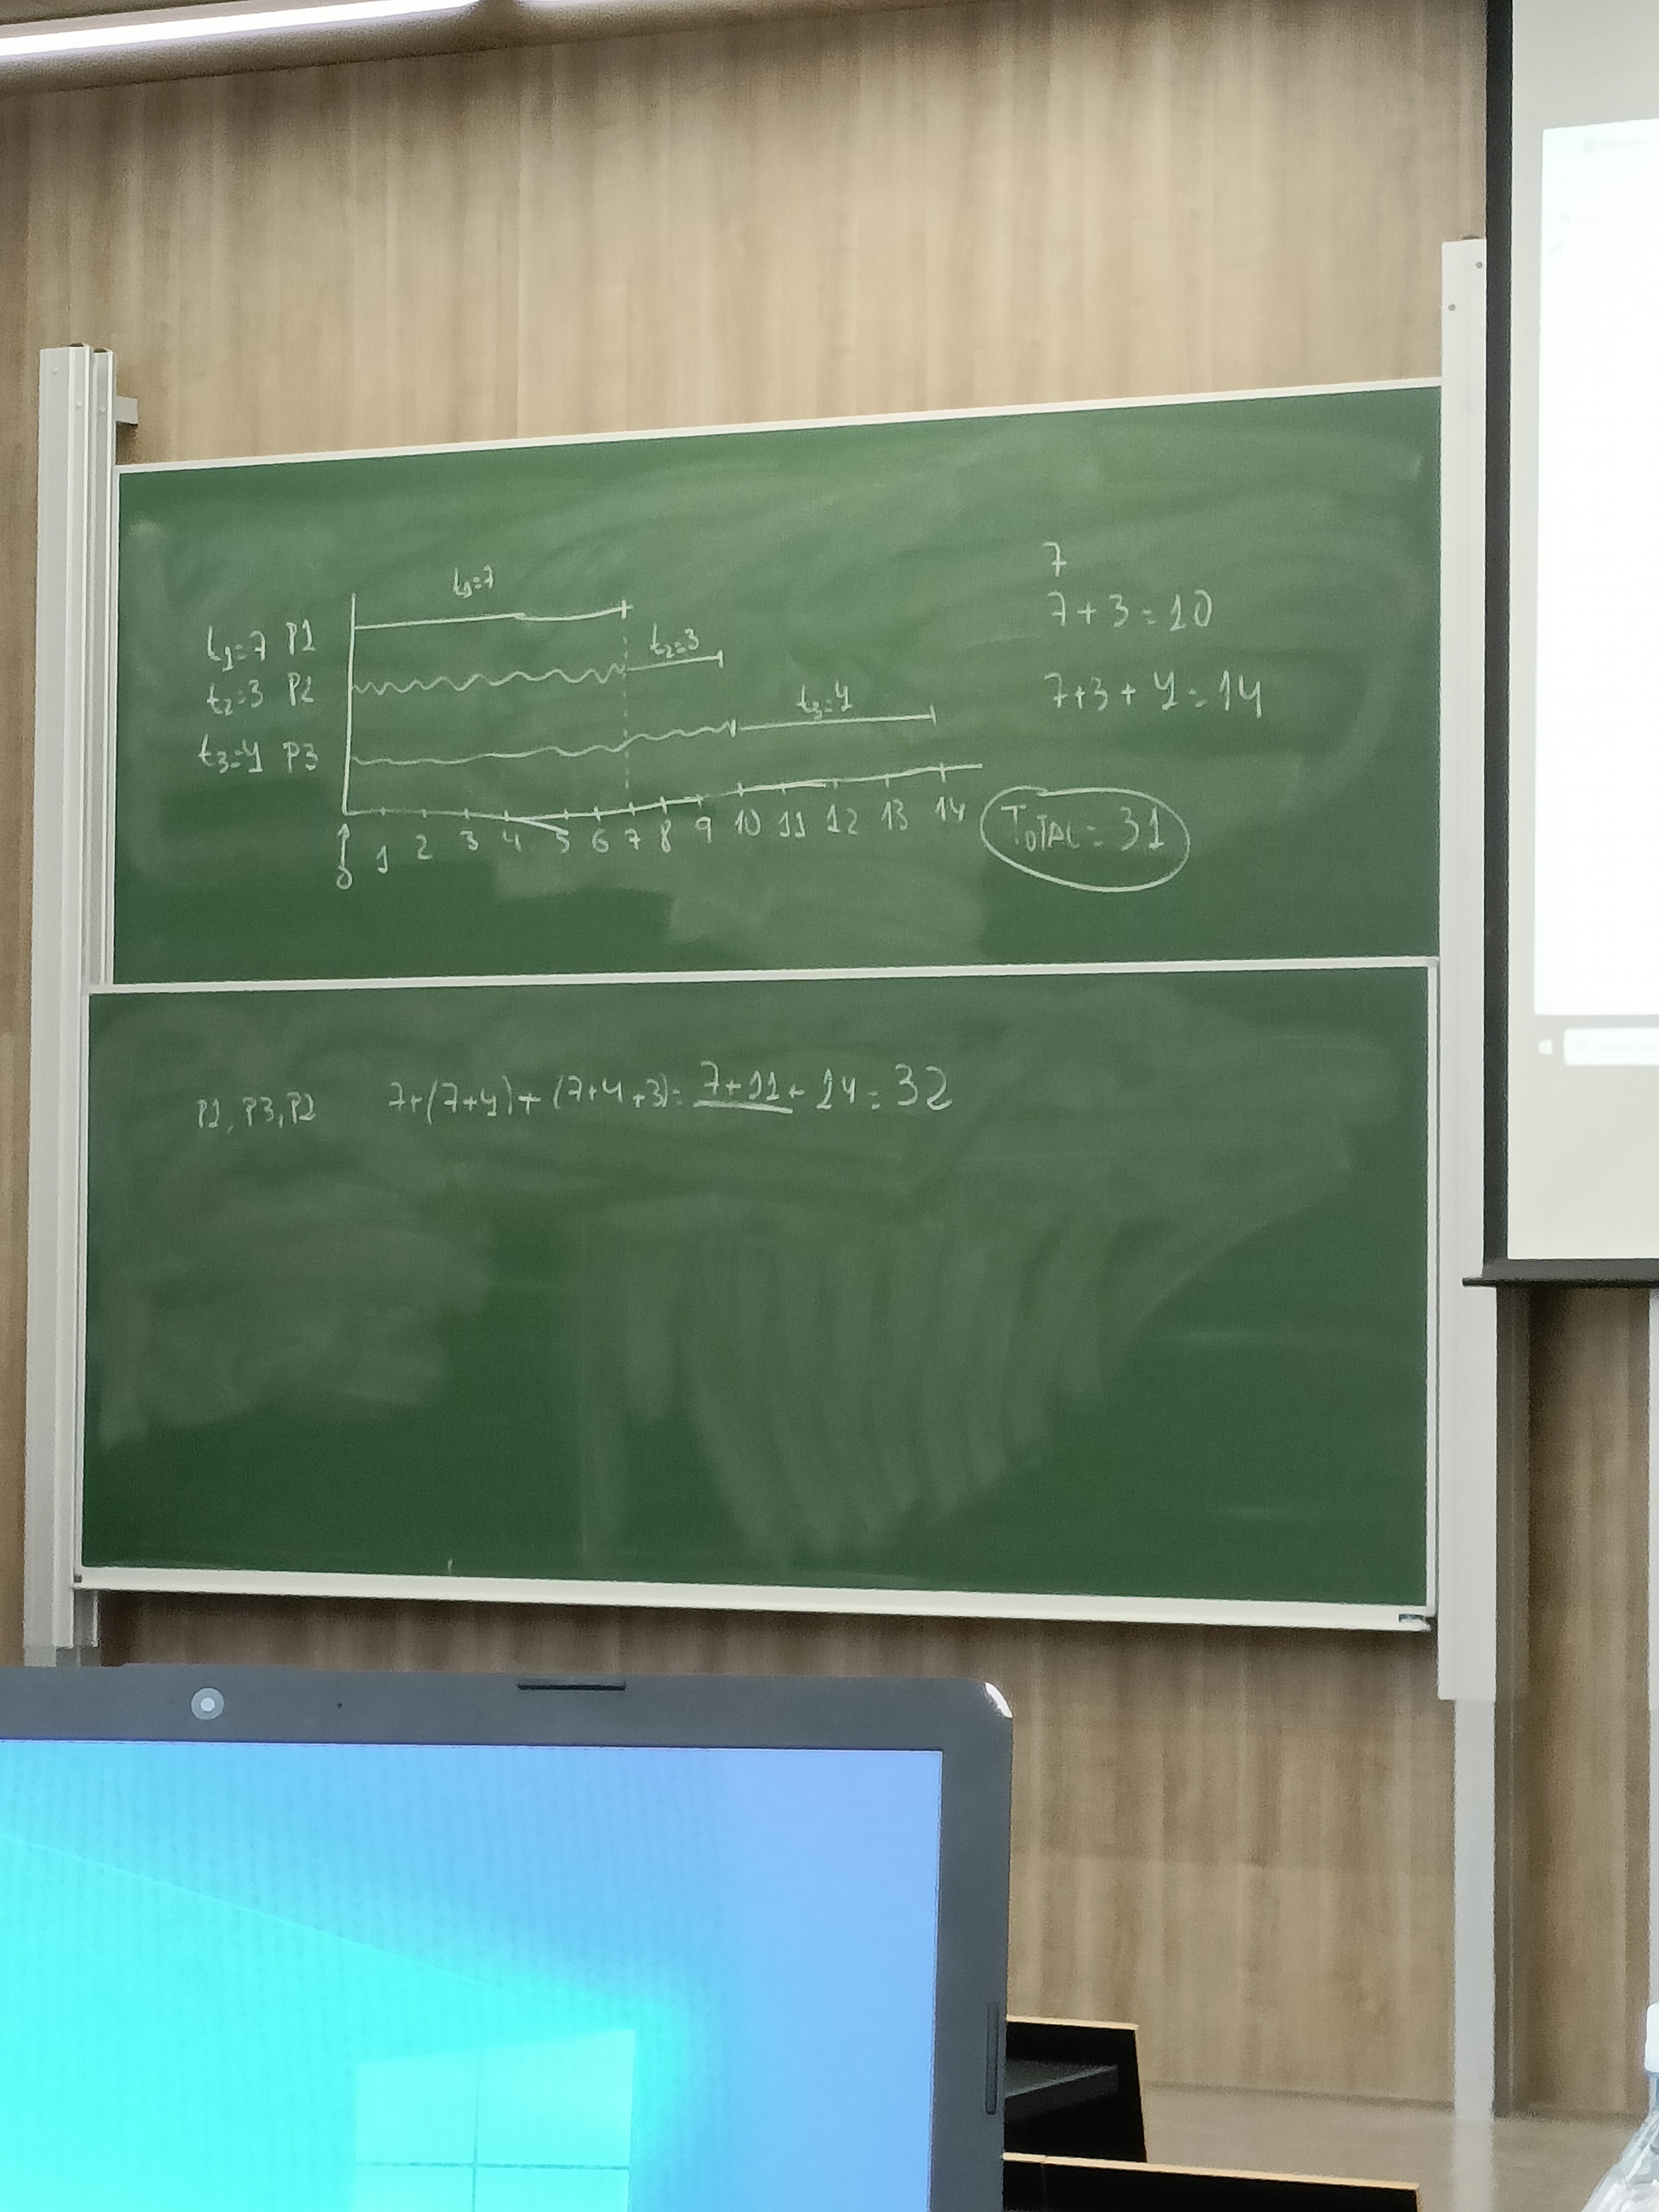 t₁=7
t₁=7 P1
t₂=3 P2
t₂=3
t₃=4 P3
t₃=4
0 1 2 3 4 5 6 7 8 9 10 11 12 13 14
7
7+3=10
7+3+4=14
TOTAL=31
P1, P3, P2 7+(7+4)+(7+4+3)=7+11+14=32